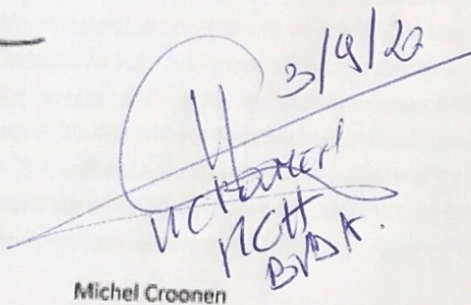 3/9/20
M CROONEN
MCH
BVBA.
Michel Croonen